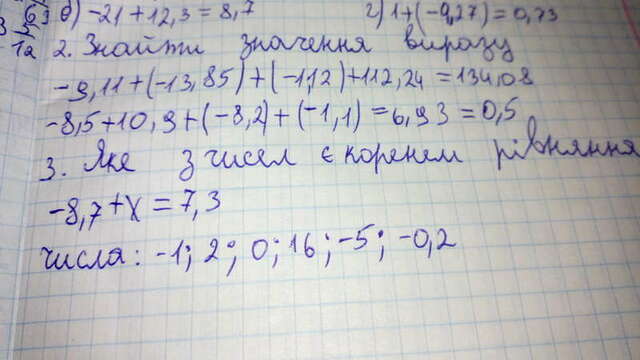 б) -21+12,3=8,7 г) 1+(-0,27)=0,73
2. Знайти значення виразу
-9,11+(-13,85)+(-1,12)+112,24=134,08
-8,5+10,9+(-8,2)+(-1,1)=6,93=0,5
3. Яке з чисел є коренем рівняння
-8,7+x=7,3
числа: -1; 2; 0; 16; -5; -0,2